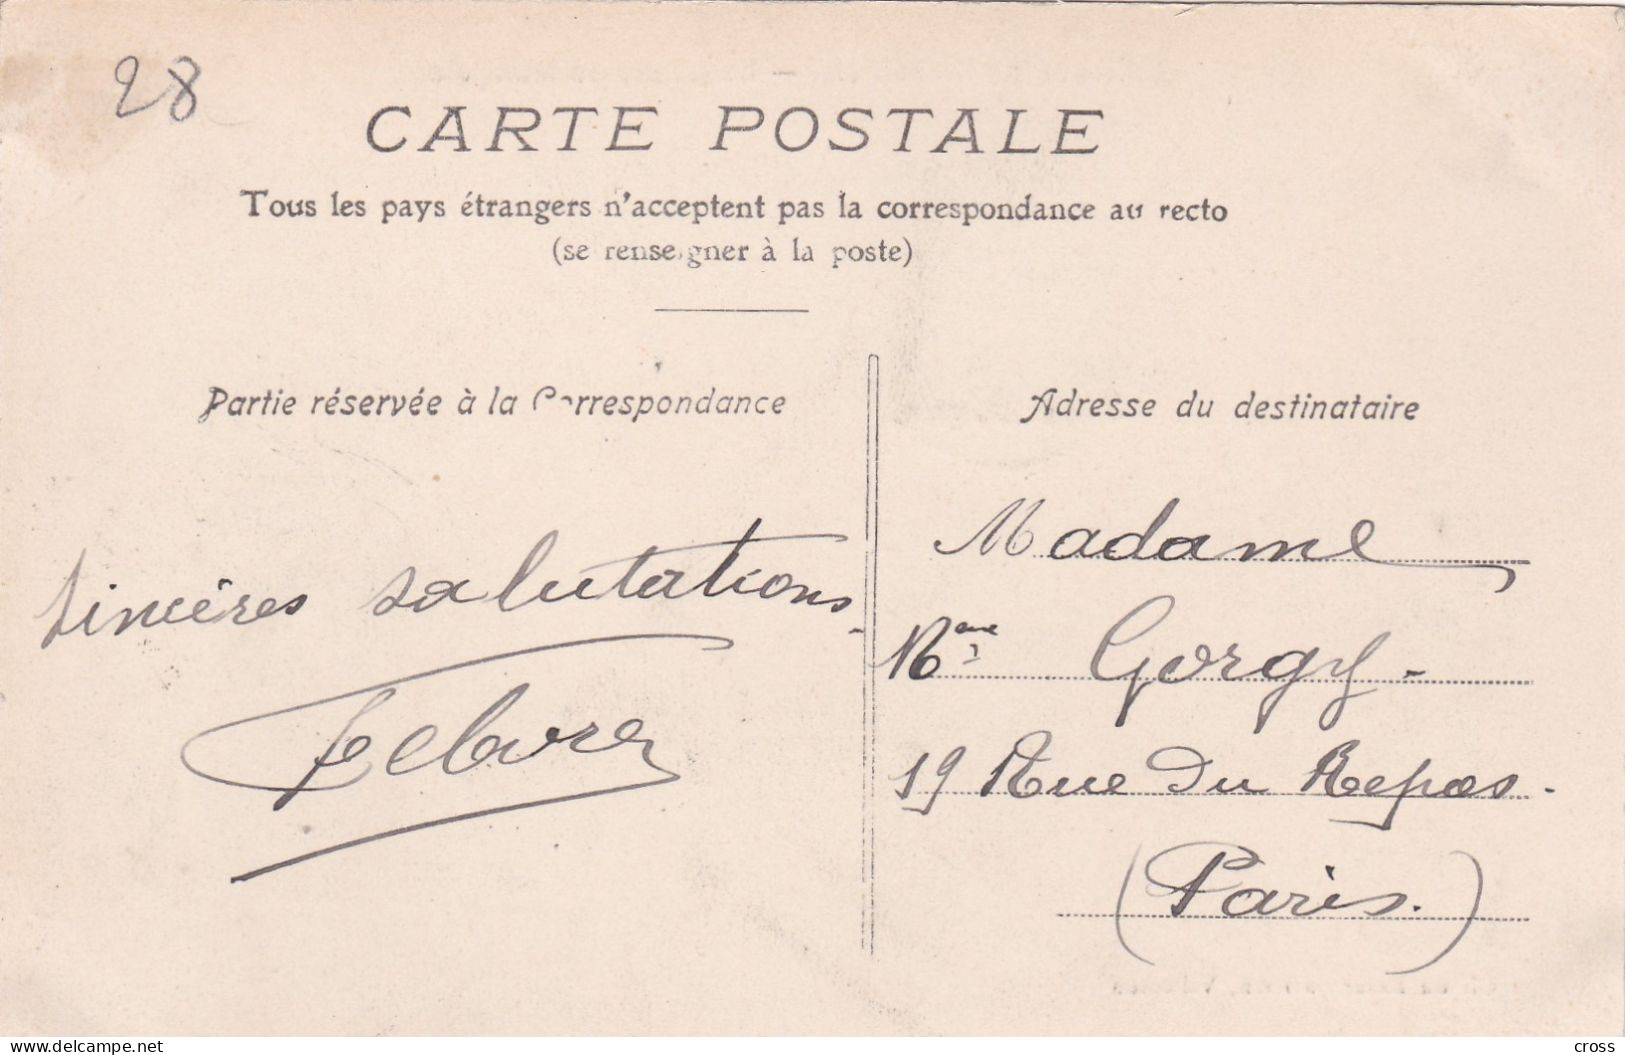 28
CARTE POSTALE
Tous les pays étrangers n'acceptent pas la correspondance au recto
(se renseigner à la poste)
Partie réservée à la Correspondance
Sincères salutations.
Adresse du destinataire
Madame
Gorgy.
19 Rue Du Repos.
(Paris.)
www.delcampe.net
cross